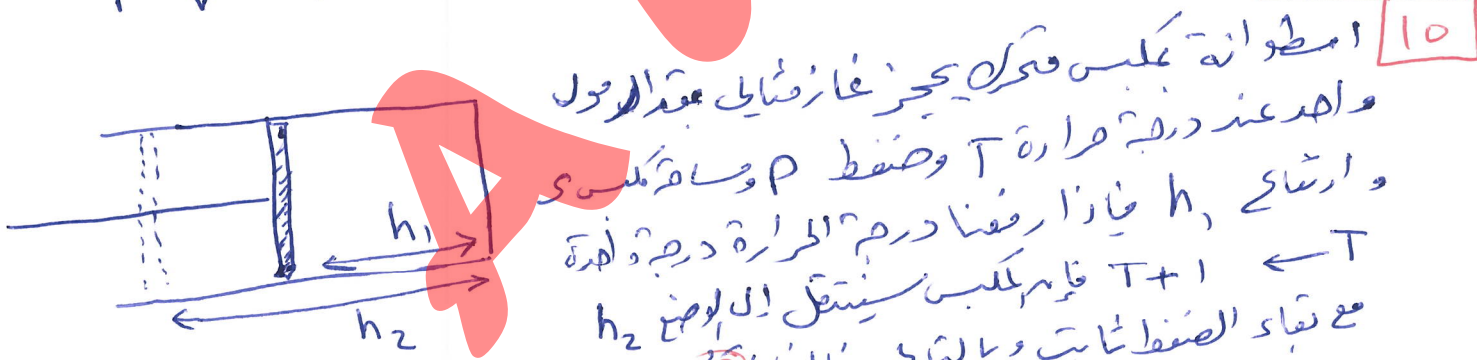 10
اسطوانة بمكبس متحرك يحجز غاز مثالي بمقدار مول
واحد عند درجة حرارة T وضغط P ومساحة مكبس s
وارتفاع h1 فإذا رفعنا درجة الحرارة درجة واحدة
T → T+1 فإن المكبس سينتقل إلى الوضع h2
مع بقاء الضغط ثابت وبالتالي
h1
h2